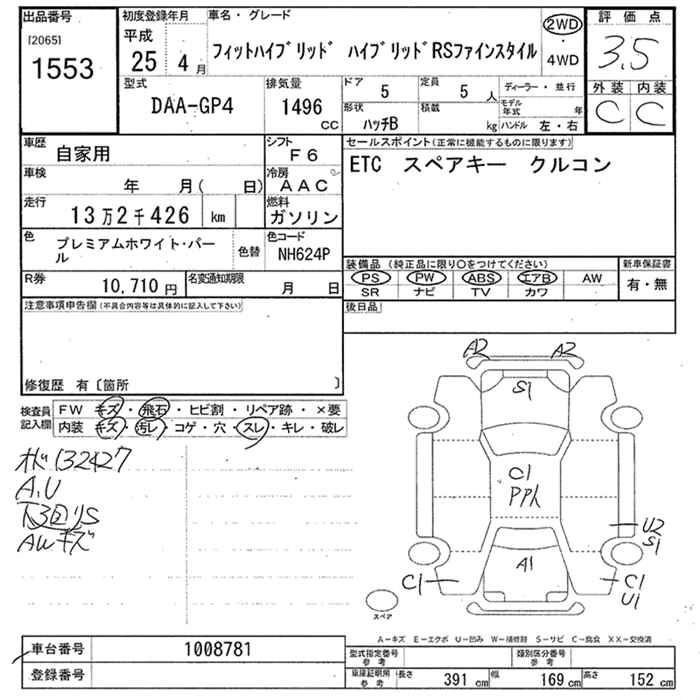 出品番号
[2065]
1553
初度登録年月
平成
25 4 月
車名・グレード
フィットハイブリッド ハイブリッドRSファインスタイル
2WD
・
4WD
評価点
3.5
外装 内装
C C
型式
DAA-GP4
排気量
1496
CC
ドア
5
定員
5 人
形状
ハッチB
積載
kg
ディーラー・並行
モデル年式 年
ハンドル 左・右
車歴
自家用
シフト
F6
車検
年 月( 日)
冷房
AAC
走行
13万2千426 km
燃料
ガソリン
色
プレミアムホワイト・パール
色替
色コード
NH624P
R券
10,710 円
名変通知期限
月 日
セールスポイント(正常に機能するものに限ります)
ETC スペアキー クルコン
装備品(純正品に限り○をつけてください)
PS PW ABS エアB AW
SR ナビ TV カワ
新車保証書
有・無
後日品
注意事項申告欄(不具合内容等は具体的に記入して下さい)
修復歴 有〔箇所 〕
検査員記入欄
FW キズ・飛石・ヒビ割・リペア跡・×要
内装 キズ・汚レ・コゲ・穴・スレ・キレ・破レ
132427
A.U
下回りS
AWキズ
A2 A2
S1
C1
PPh
U2
S1
A1
C1
C1
U1
スペア
A-キズ E-エクボ U-凹み W-補修跡 S-サビ C-腐食 XX-交換済
車台番号
1008781
登録番号
型式指定番号
参考
類別区分番号
参考
車庫証明用
参考
長さ
391 cm
幅
169 cm
高さ
152 cm